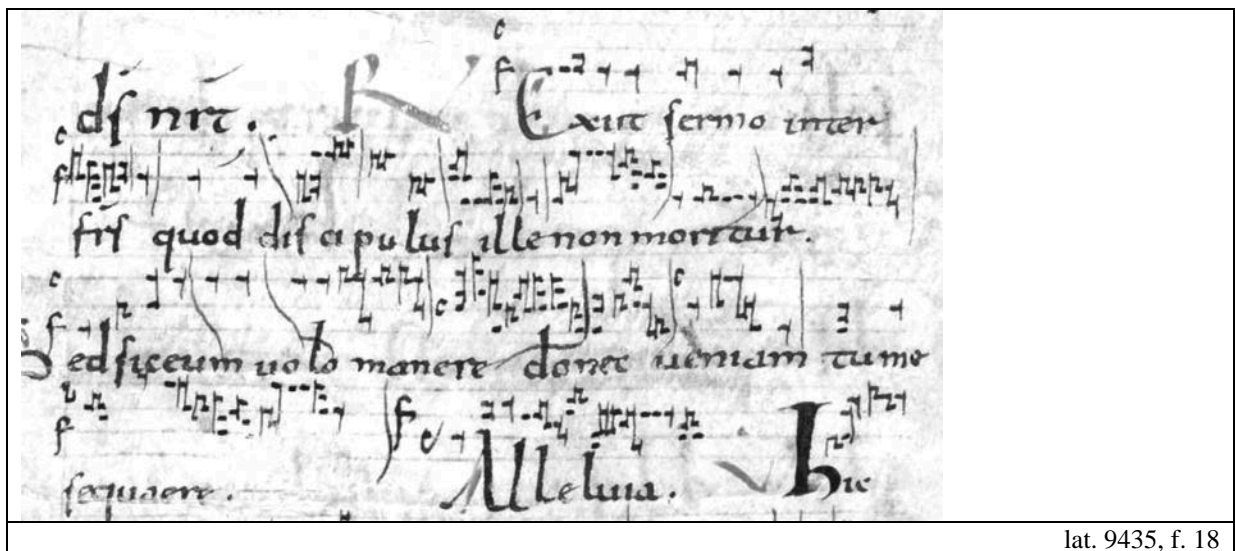 ds nrt. R Exiit sermo inter
frs quod discipulus ille non moritur.
Sed sic eum volo manere donec veniam tu me
sequaere. Alleluia. V Hic
lat. 9435, f. 18